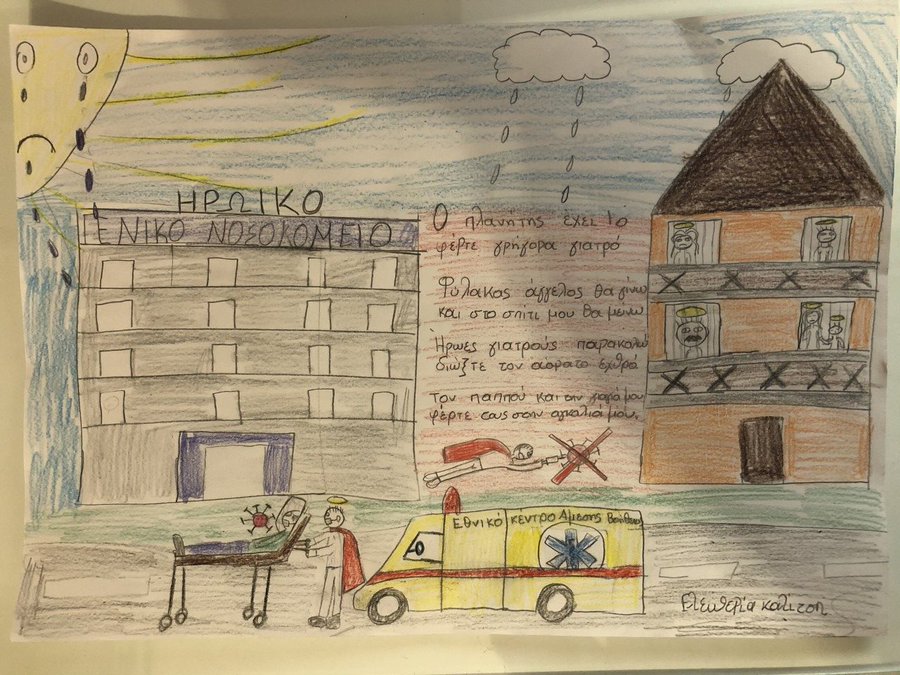 ΗΡΩΙΚΟ
ΕΝΙΚΟ ΝΟΣΟΚΟΜΕΙΟ
Ο πλανήτης έχει ιο
φέρτε γρήγορα γιατρό
Φύλακας άγγελος θα γίνω
και στο σπίτι μου θα μείνω
Ήρωες γιατρούς παρακαλώ
διώξτε τον αόρατο εχθρό
τον παππού και την γιαγιά μου
φέρτε τους στην αγκαλιά μου.
Εθνικό κέντρο Αμεσης
Ελευθερία